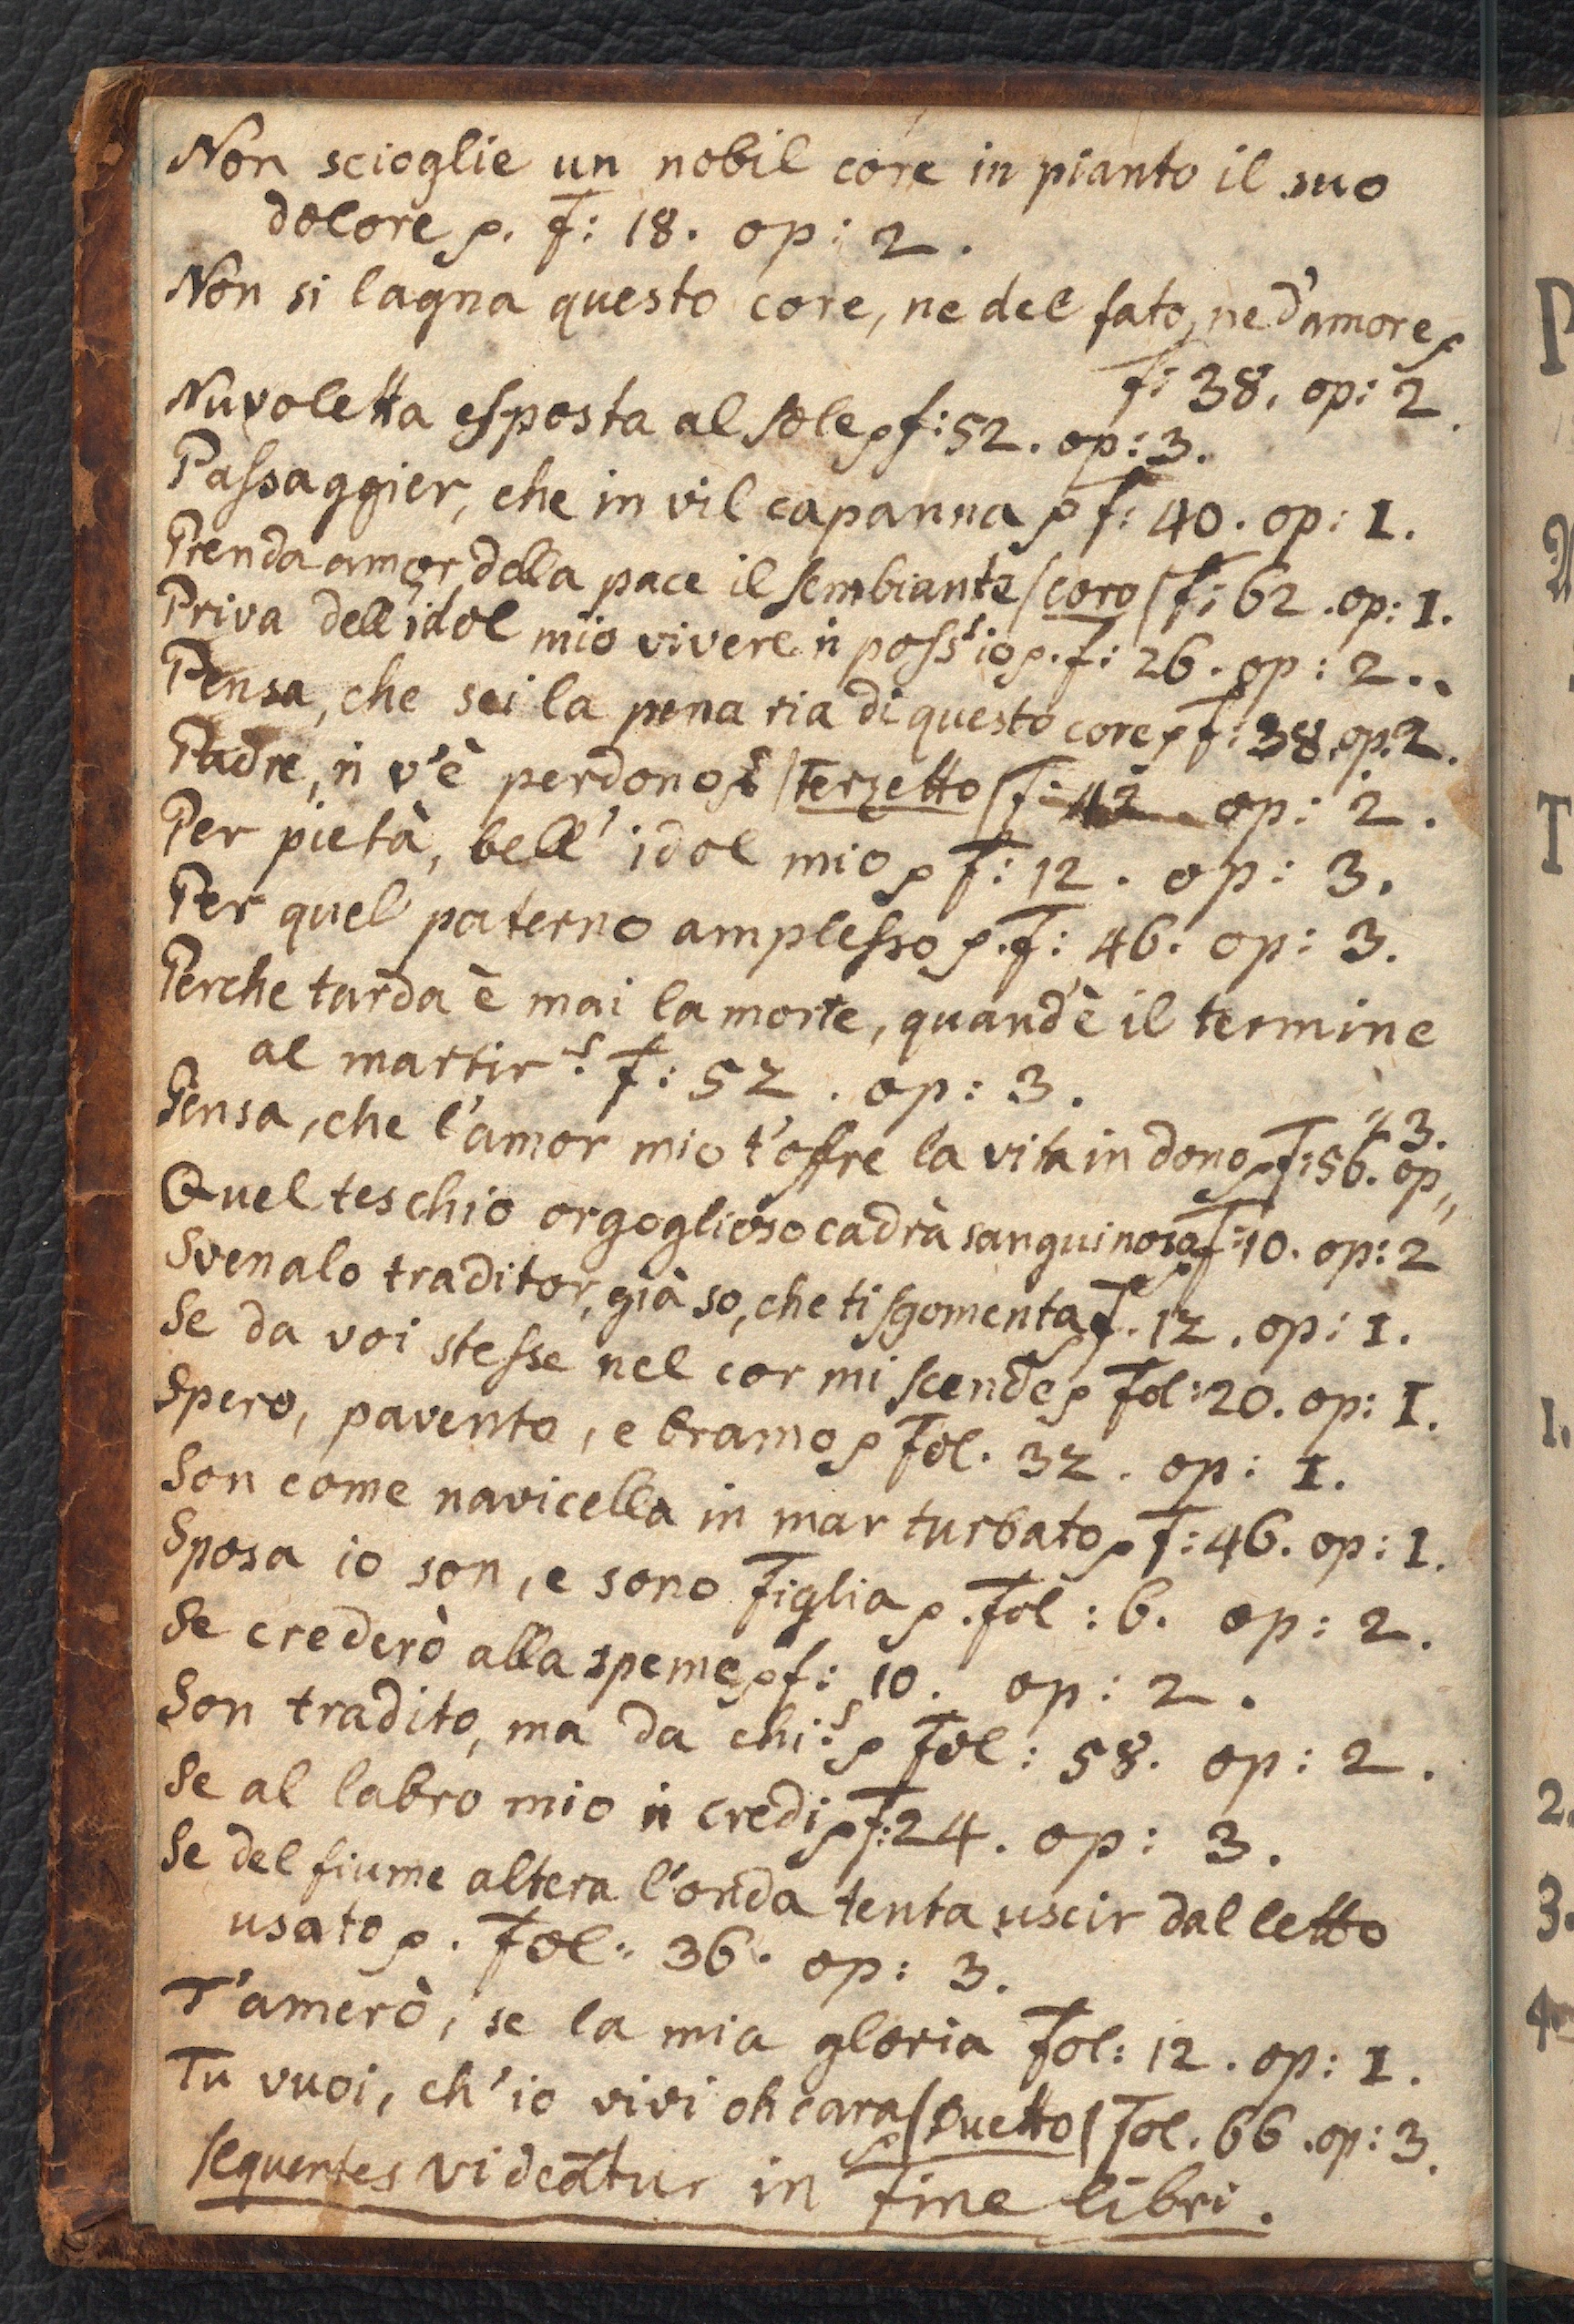 Non scioglie un nobil core in pianto il suo
dolore p. f: 18. op: 2.
Non si lagna questo core, ne del fato, ne d'amore p
f: 38. op: 2.
Nuvoletta esposta al sole p f: 52. op: 3.
Passaggier, che in vil capanna p f: 40. op: 1.
Prenda amor della pace il sembiante / coro / f: 62. op: 1.
Priva dell'idol mio vivere ñ poss'io p. f: 26. op: 2.
Pensa, che sei la pena ria di questo core p f: 38. op. 2.
Padre, ñ v'è perdono / Terzetto / f: 42. op: 2.
Per pietà, bell'idol mio p f: 12. op: 3.
Per quel paterno amplesso p. f: 46. op: 3.
Perche tarda è mai la morte, quand'è il termine
al martir? f: 52. op: 3.
Pensa, che l'amor mio t'offre la vita in dono p f: 56. op" "3.
Quel teschio orgoglioso cadrà sanguinoso p f: 10. op: 2
Svenalo traditor, già so, che ti sgomenta p f. 12. op: 1.
Se da voi stesse nel cor mi scende p Fol: 20. op: 1.
Spero, pavento, e bramo p Fol. 32. op: 1.
Son come navicella in mar turbato p f: 46. op: 1.
Sposa io son, e sono Figlia p. Fol: 6. op: 2.
Se crederò alla speme p f: 10. op: 2.
Son tradito, ma da chi? p Fol: 58. op: 2.
Se al labro mio ñ credi p f: 24. op: 3.
Se del fiume altera l'onda tenta uscir dal letto
usato p. Fol: 36. op: 3.
T'amerò, se la mia gloria Fol: 12. op: 1.
Tu vuoi, ch'io vivi oh cara p / Duetto / Fol. 66. op: 3.
sequentes videãtur in fine libri.